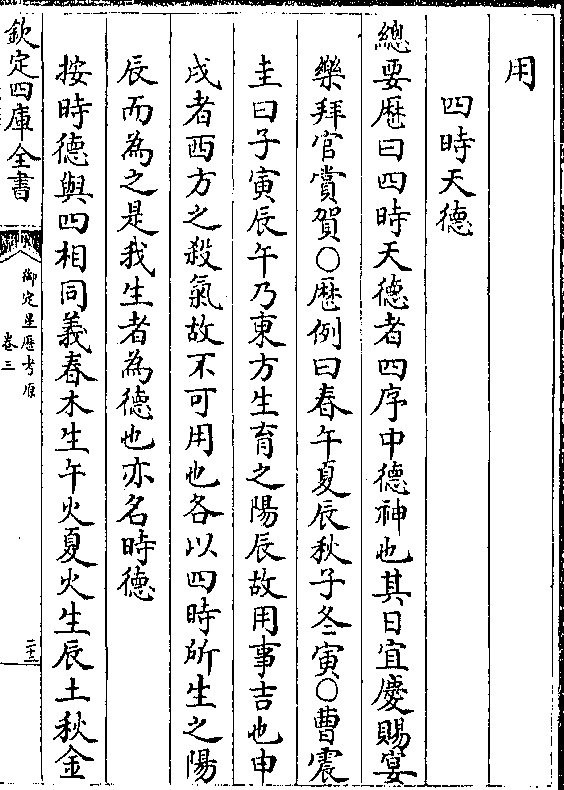 用
四時天德
總要厯曰四時天德者四序中德神也其日宜慶賜宴
樂拜官賞賀○厯例曰春午夏辰秋子冬寅○曹震
圭曰子寅辰午乃東方生育之陽辰故用事吉也申
戌者西方之殺氣故不可用也各以四時所生之陽
辰而為之是我生者為德也亦名時德
按時德與四相同義春木生午火夏火生辰土秋金
欽定四庫全書
御定星厯考原
卷三
二十三